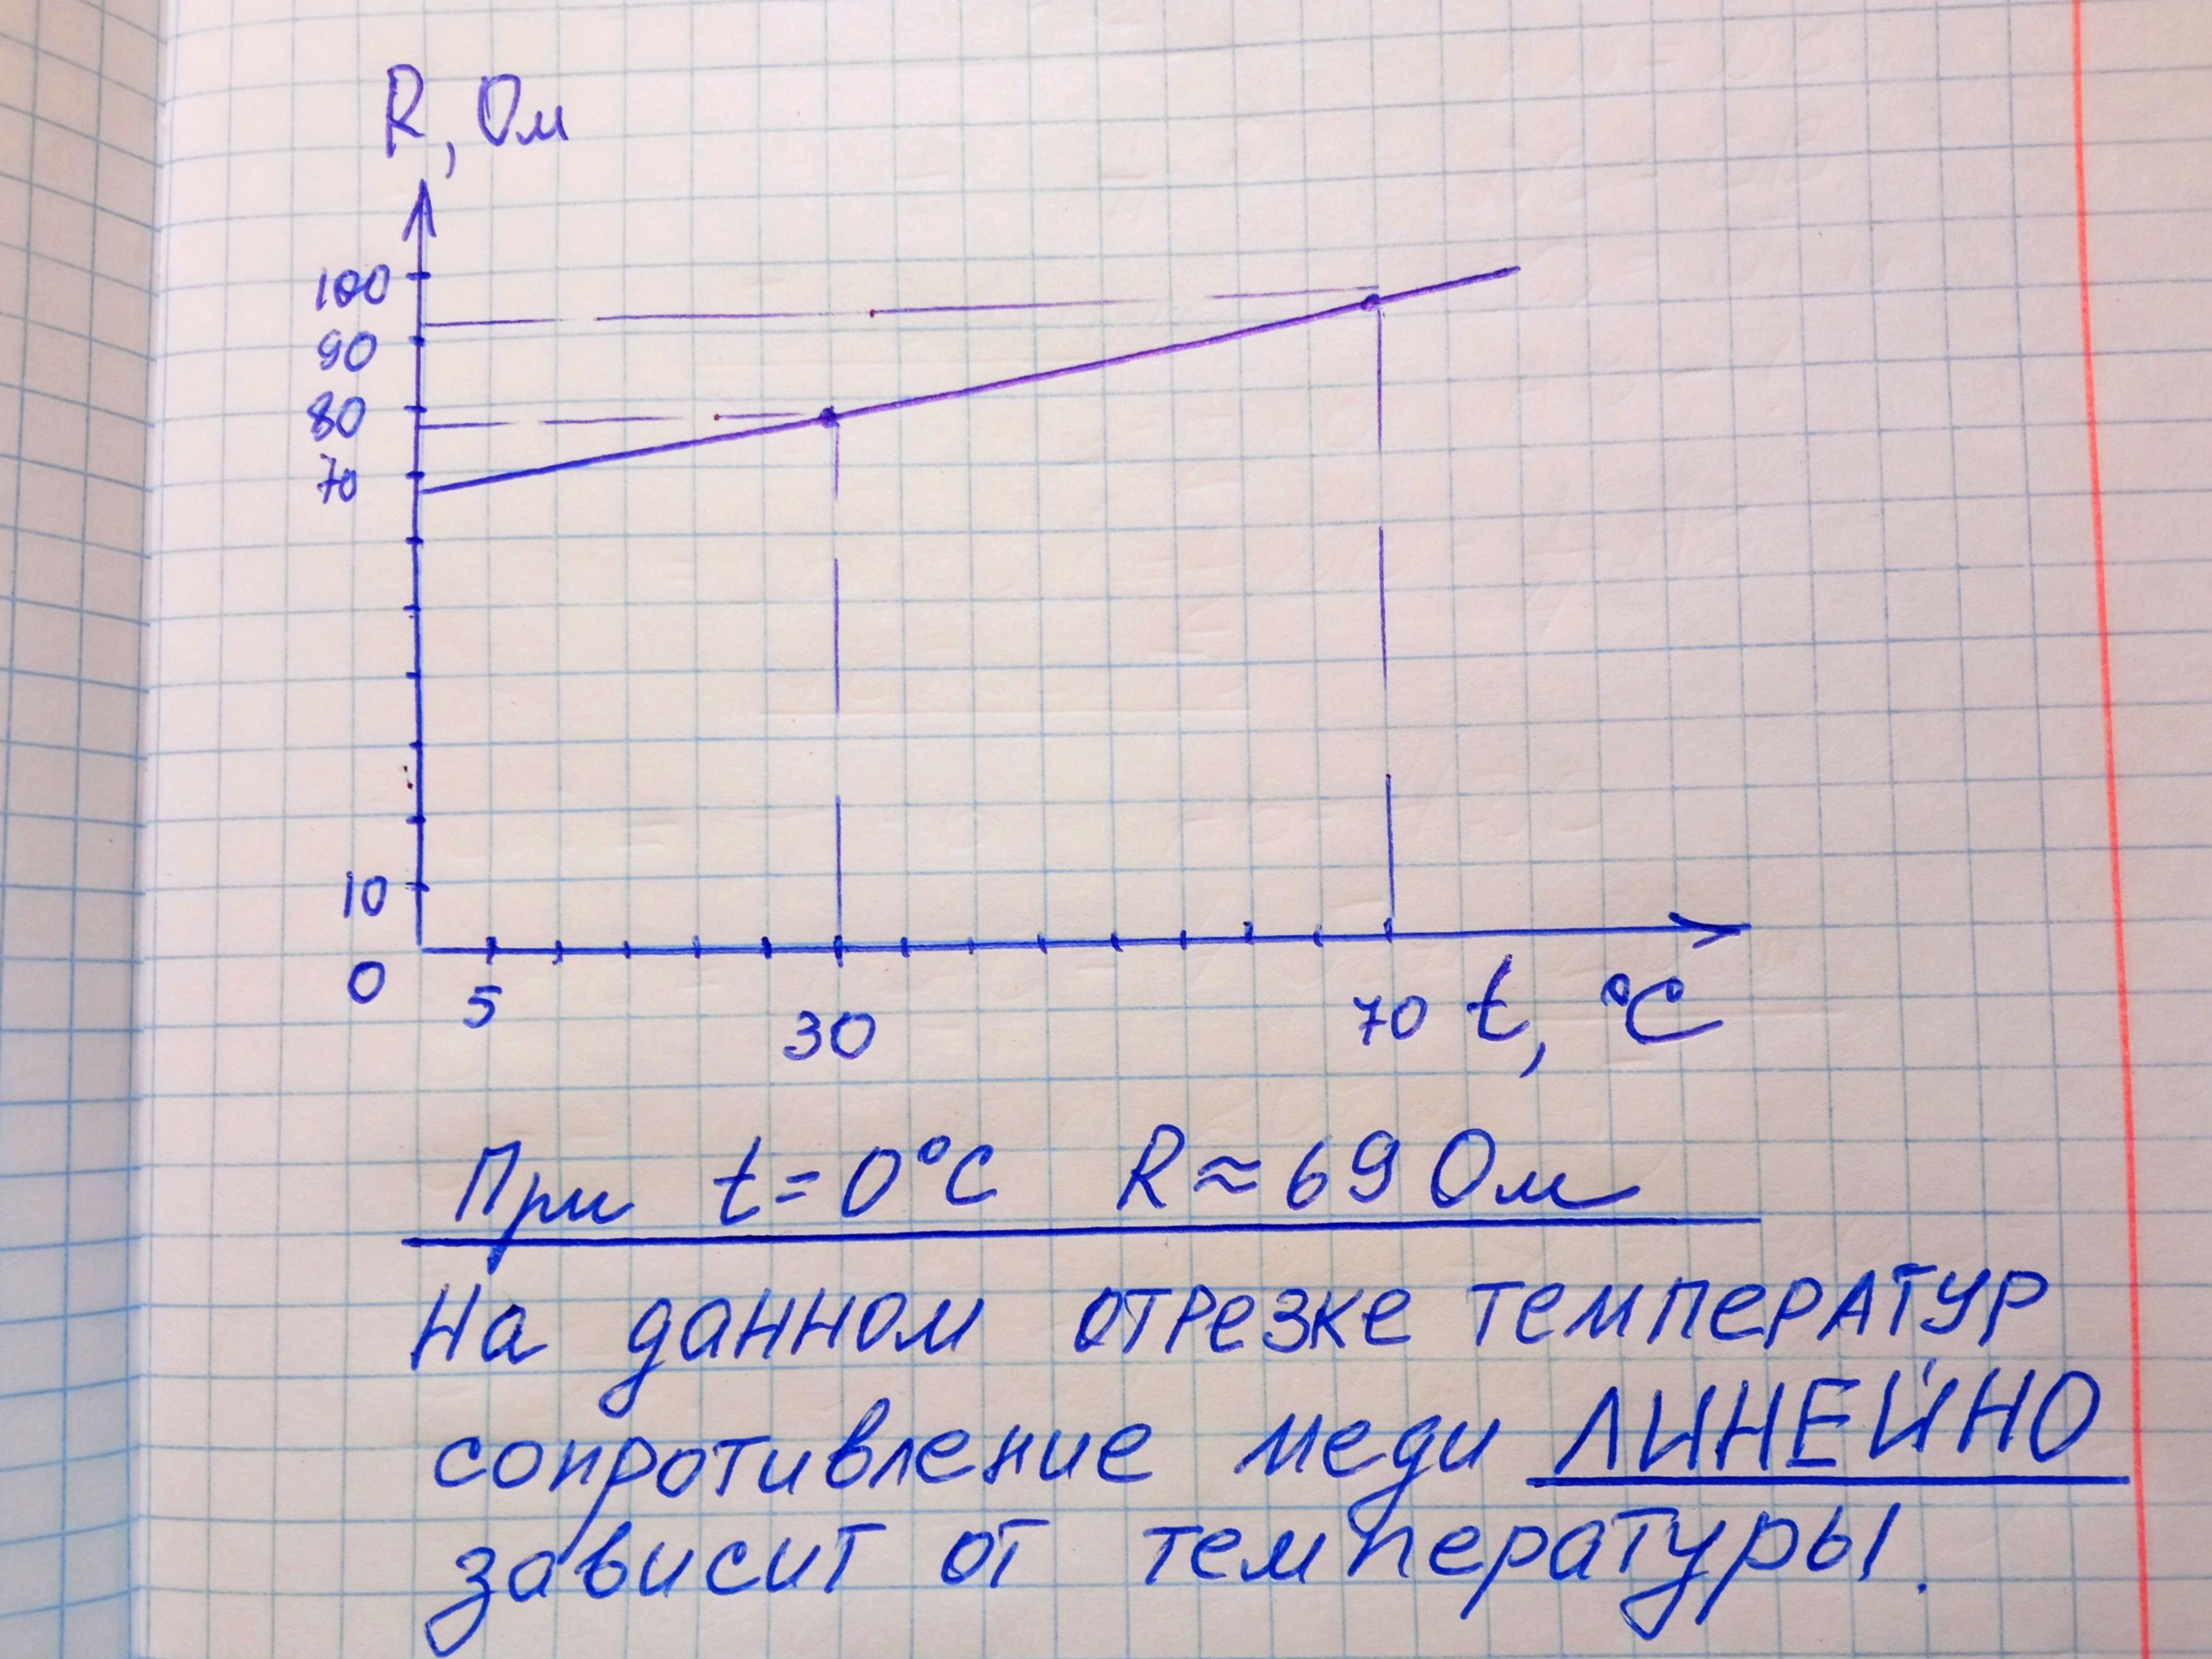 R, Ом
100
90
80
70
10
0
5
30
70 t, °C
При t=0°C R≈69 Ом
На данном отрезке температур
сопротивление меди ЛИНЕЙНО
зависит от температуры.